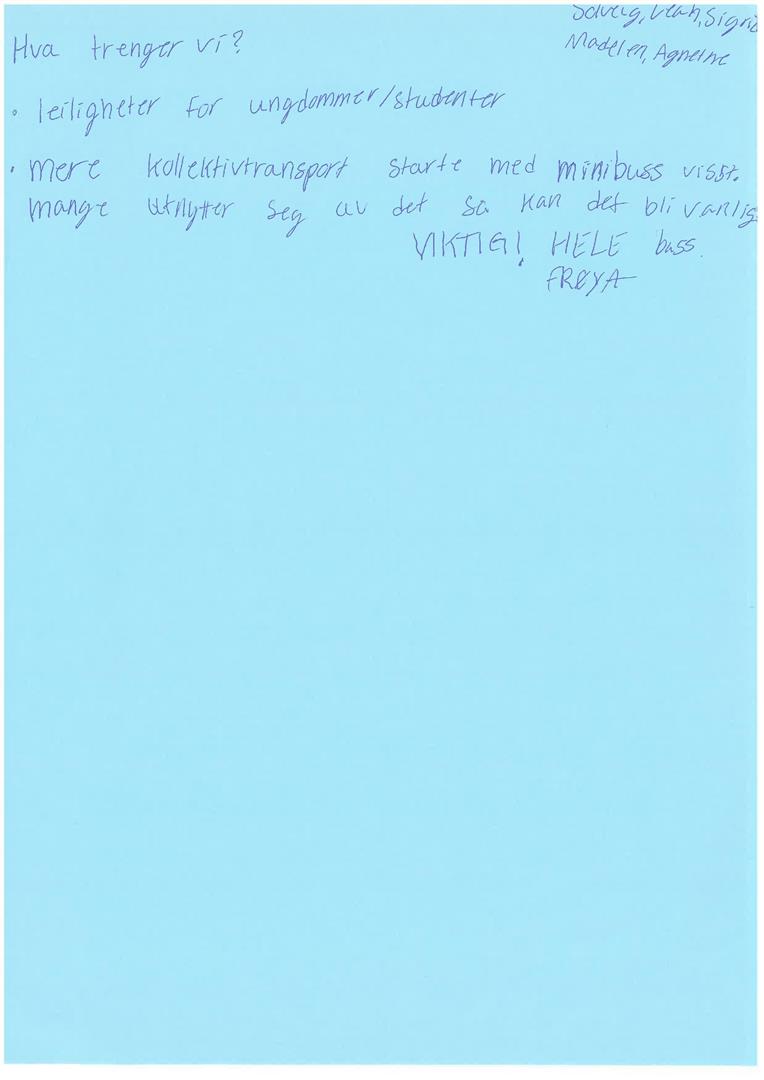 Solveig, Leah, Sigrid
Madelen, Agneine
Hva trenger vi?
• leiligheter for ungdommer/studenter
• mere kollektivtransport starte med minibuss visst.
mange utnytter seg av det så kan det bli vanlig
VIKTIG! HELE buss.
FRØYA